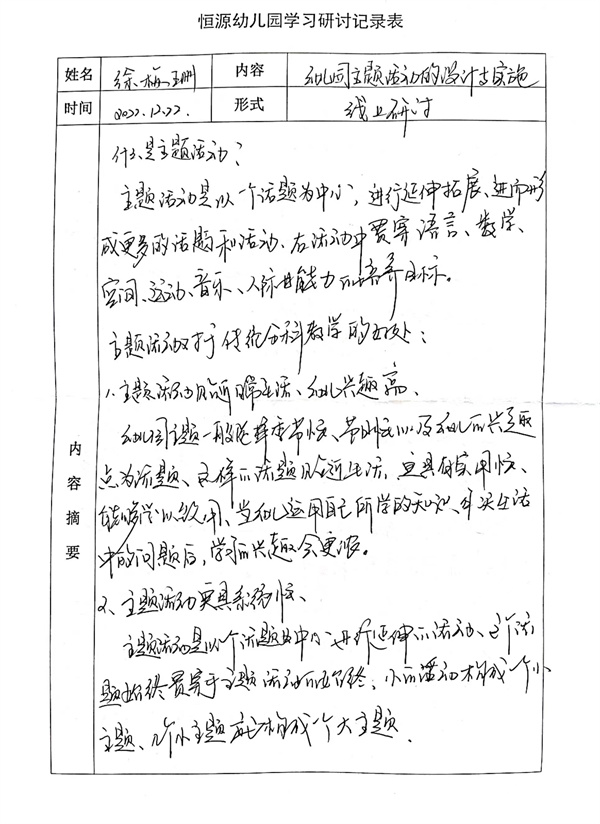 恒源幼儿园学习研讨记录表
姓名 徐梅珊 内容 幼儿园主题活动的设计与实施
时间 2022.12.22. 形式 线上研讨
内容摘要
什么是主题活动：
主题活动是以一个话题为中心，进行延伸拓展、进而形
成更多的话题和活动、在活动中贯穿语言、数学、
空间、运动、音乐、人际等能力的培养目标。
主题活动对于传统分科教学的好处：
1、主题活动贴近日常生活、幼儿兴趣高、
幼儿园主题一般选择季节性、节日性以及幼儿的兴趣
点为话题、这样的话题贴近生活，且具有实用性、
能够学以致用、当幼儿运用自己所学的知识、解决生活
中的问题后，学的兴趣会更浓。
2、主题活动更具系统性、
主题活动是以一个话题为中心进行延伸的活动、这个话
题始终贯穿于主题活动的始终，小的活动构成一个小
主题、几个小主题就构成一个大主题